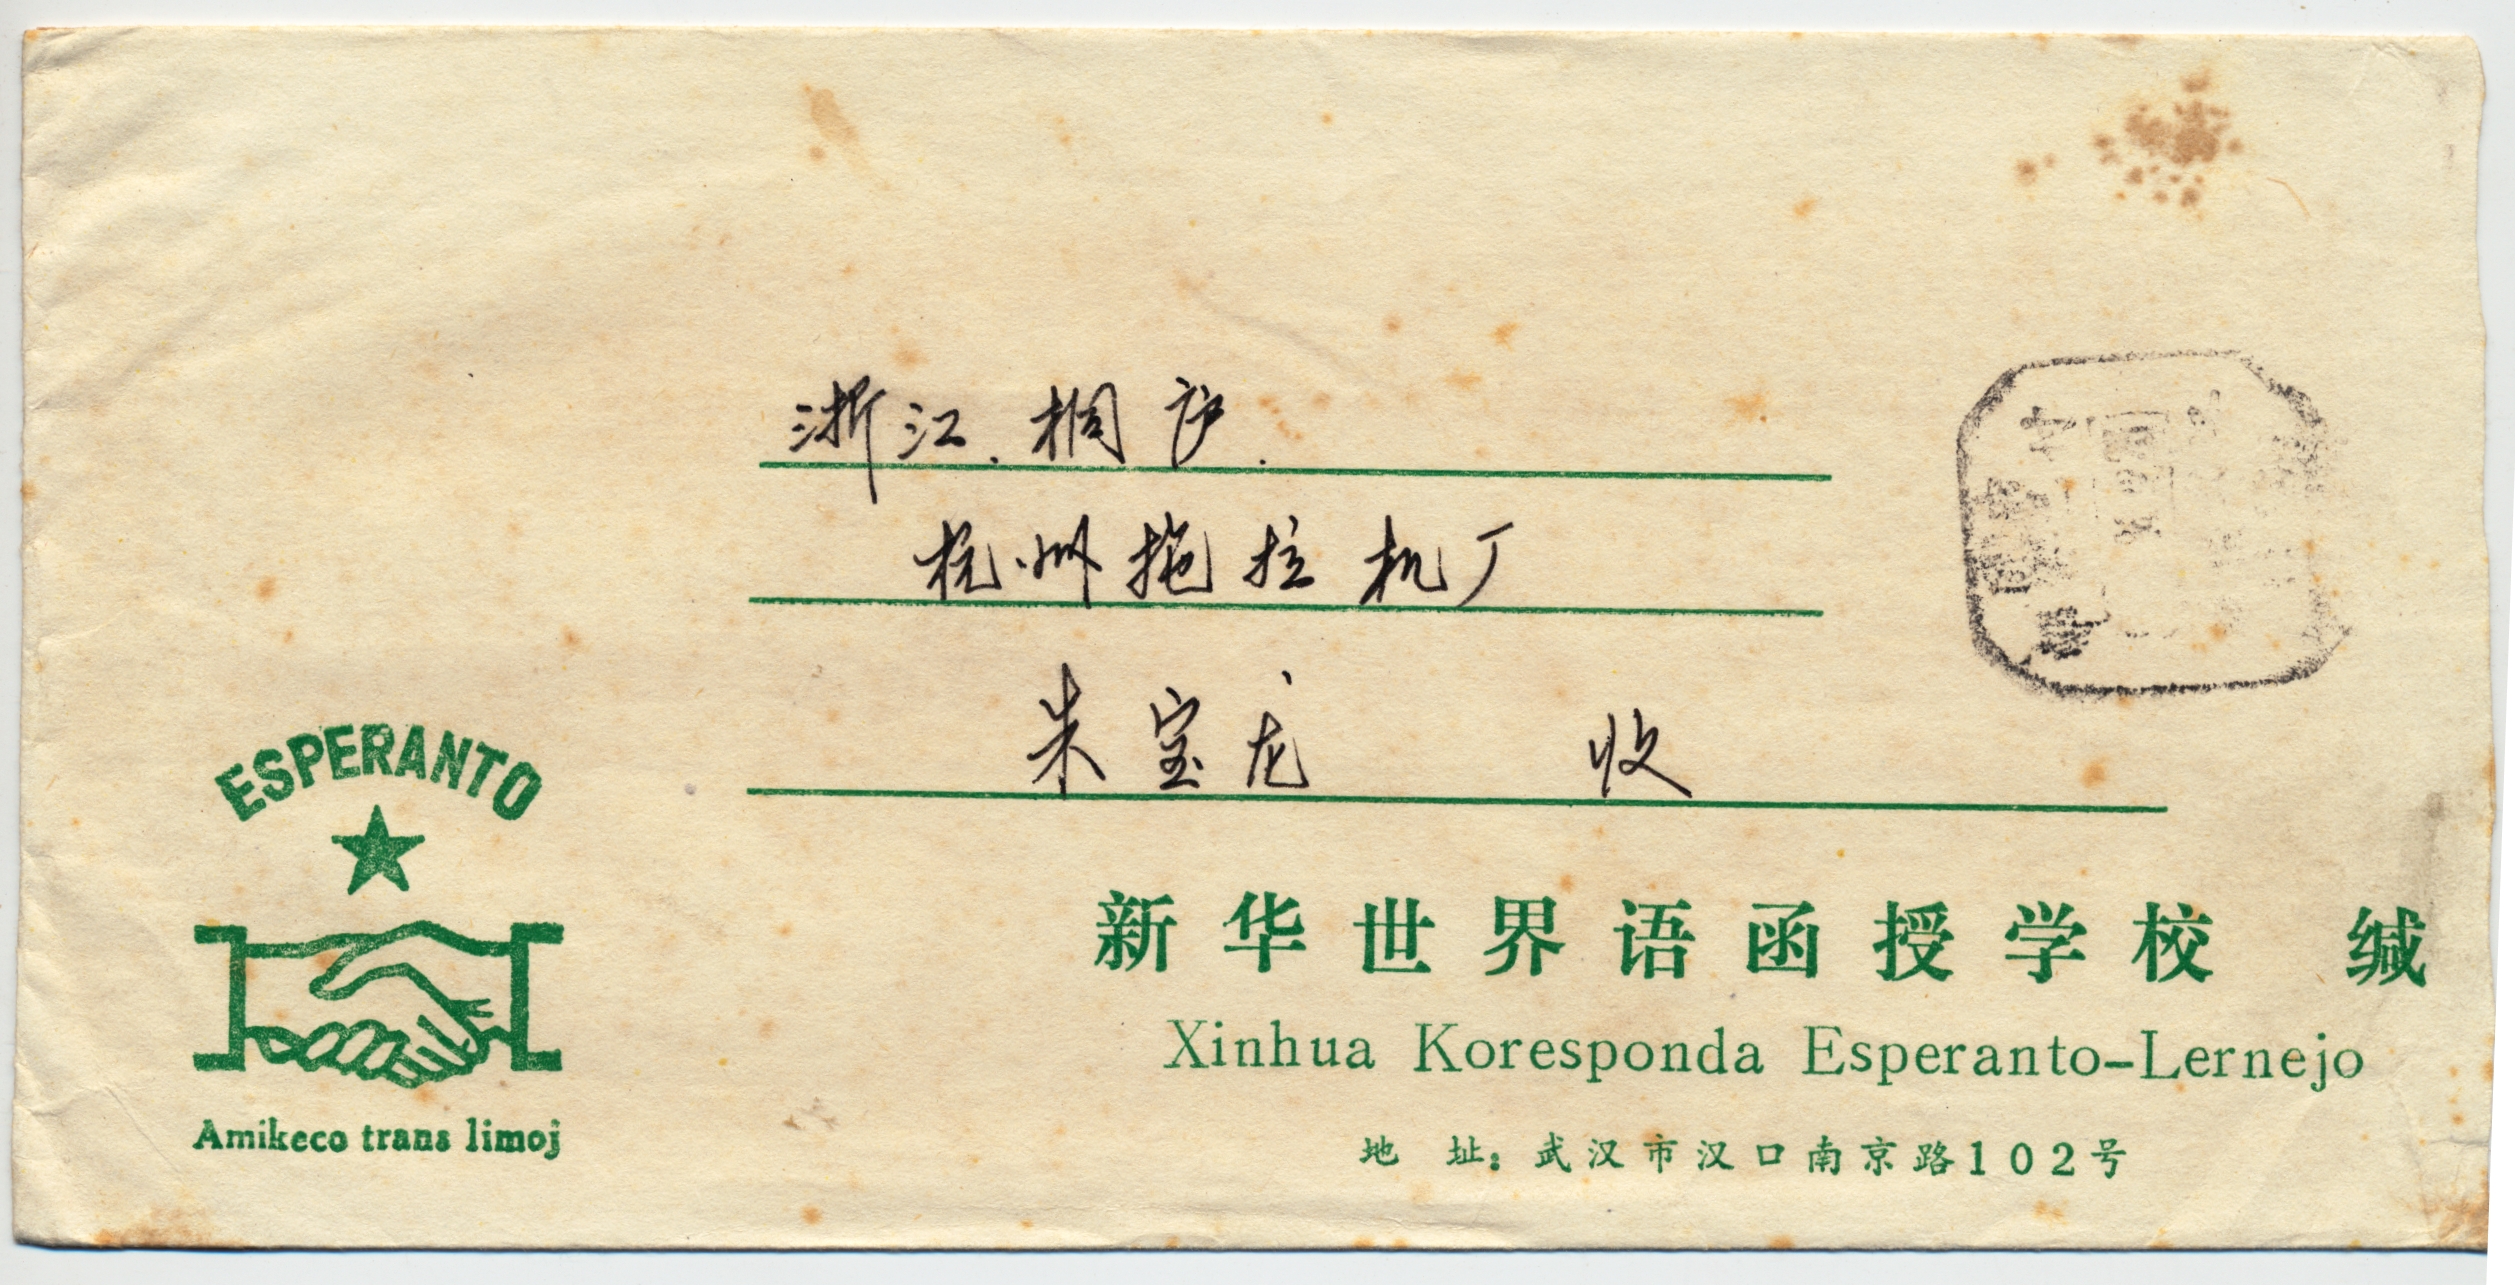 浙江.桐庐.
杭州拖拉机厂
朱宝龙 收
ESPERANTO
Amikeco trans limoj
新华世界语函授学校 缄
Xinhua Koresponda Esperanto-Lernejo
地 址: 武汉市汉口南京路102号